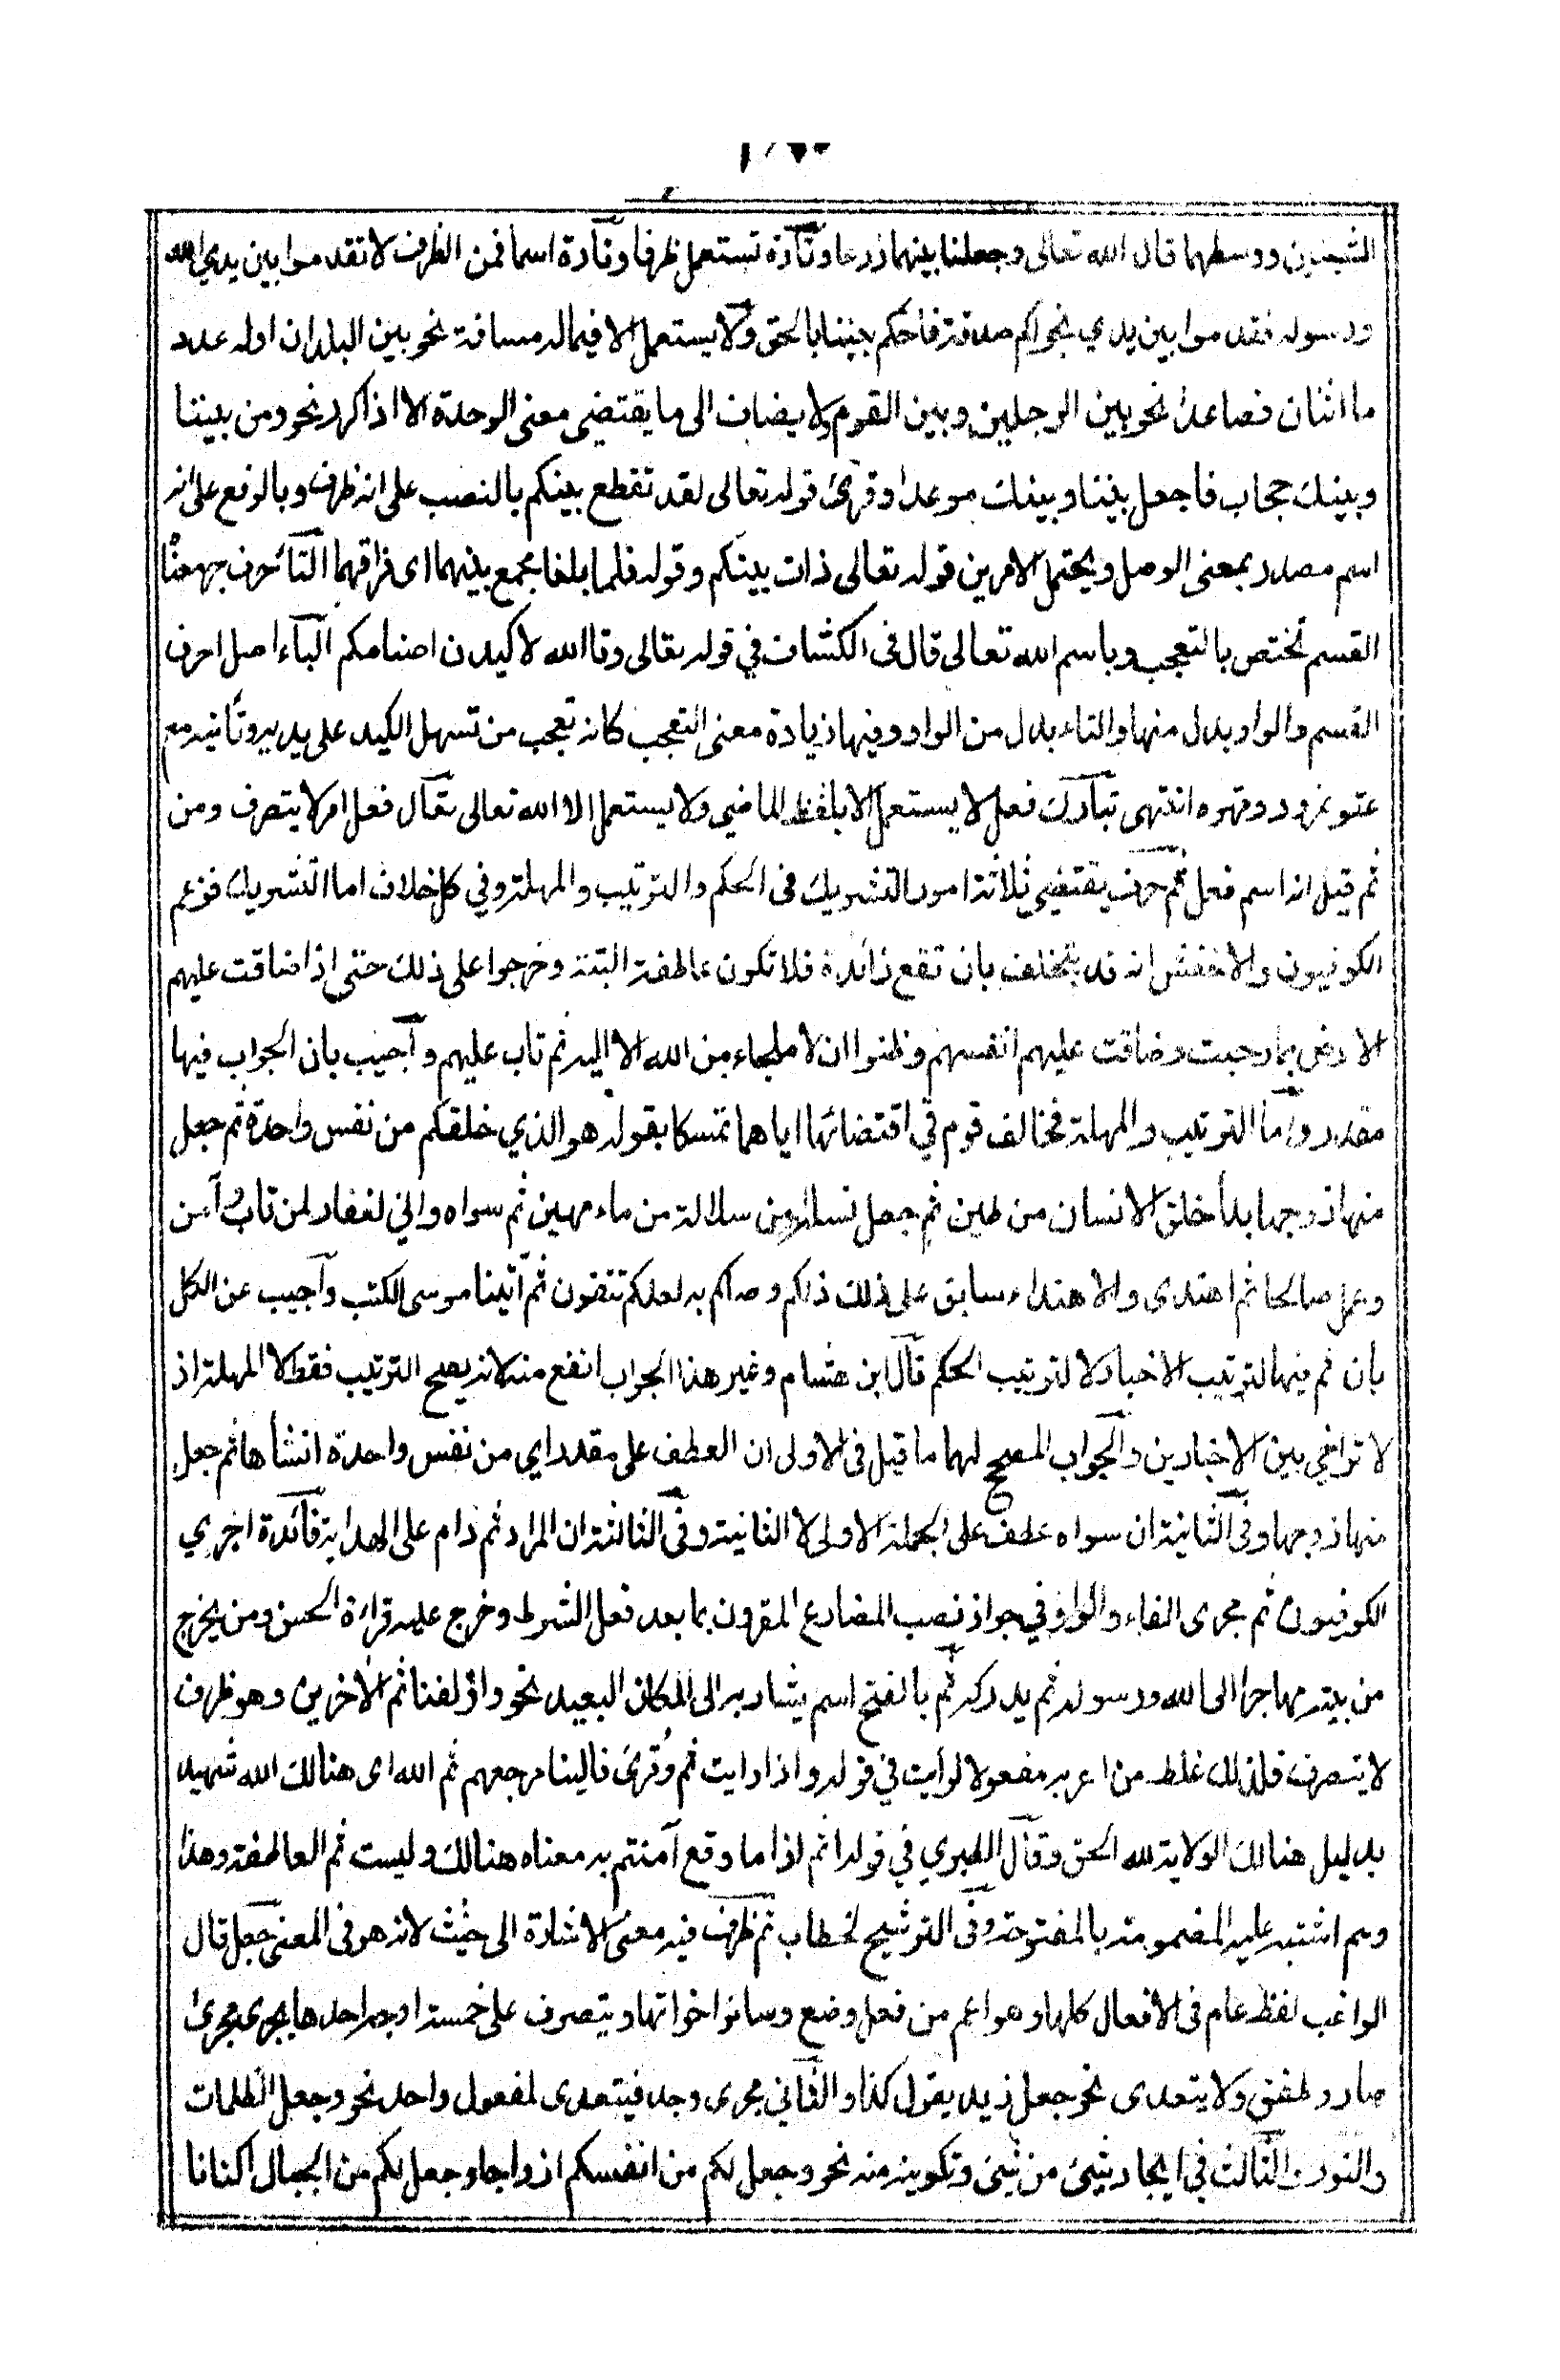 الشيئين ووسطهما قال الله تعالى وجعلنا بينهما زرعا وتارة تستعمل ظرفا وتارة اسما فمن الظرف لا تقدموا بين يدي الله
ورسوله فقدموا بين يدي نجواكم صدقة فاحكم بيننا بالحق ولا يستعمل الا فيما له مسافة نحو بين البلدان او له عدد
ما اثنان فصاعدا نحو بين الرجلين وبين القوم ولا يضاف الى ما يقتضي معنى الوحدة الا اذا كرر نحو ومن بيننا
وبينك حجاب فاجعل بيننا وبينك موعدا وقرئ قوله تعالى لقد تقطع بينكم بالنصب على انه ظرف وبالرفع على انه
اسم مصدر بمعنى الوصل ويحتمل الامرين قوله تعالى ذات بينكم وقوله فلما بلغا مجمع بينهما اى فراقهما التاء حرف جر معناه
القسم تختص بالتعجب وباسم الله تعالى قال فى الكشاف في قوله تعالى وتاالله لاكيدن اصنامكم الباء اصل احرف
القسم والواو بدل منها والتاء بدل من الواو وفيها زيادة معنى التعجب كانه تعجب من تسهل الكيد على يديه وتاتيه مع
عتو نمرود وقهره انتهى تبارك فعل لا يستعمل الا بلفظ الماضي ولا يستعمل الا الله تعالى تعال فعل امر لا يتصرف ومن
ثم قيل انه اسم فعل ثم حرف يقتضي ثلاثة امور التشريك فى الحكم والترتيب والمهلة وفي كل خلاف اما التشريك فزعم
الكوفيون والاخفش انه قد يتخلف بان تقع زائدة فلا تكون عاطفة البتة وخرجوا على ذلك حتى اذا ضاقت عليهم
الارض بما رحبت وضاقت عليهم انفسهم وظنوا ان لا ملجاء من الله الا اليه ثم تاب عليهم وأجيب بان الجواب فيها
مقدر واما الترتيب والمهلة فخالف قوم في اقتضائها اياهما تمسكا بقوله هو الذي خلقكم من نفس واحدة ثم جعل
منها زوجها بدأ خلق الانسان من طين ثم جعل نسله من سلالة من ماء مهين ثم سواه واني لغفار لمن تاب وآمن
وعمل صالحا ثم اهتدى والاهتداء سابق على ذلك ذلكم وصاكم به لعلكم تتقون ثم آتينا موسى الكتب وأجيب عن الكل
بان ثم فيها لترتيب الاخبار لا لترتيب الحكم قال ابن هشام وغير هذا الجواب انفع منه لانه يصحح الترتيب فقط لا المهلة اذ
لا تراخي بين الاخبارين والجواب المصحح لهما ما قيل فى الاولى ان العطف على مقدر اي من نفس واحدة انشأها ثم جعل
منها زوجها وفى الثانية ان سواه عطف على الجملة الاولى لا الثانية وفى الثالثة ان المراد ثم دام على الهداية فائدة اجري
الكوفيون ثم مجرى الفاء والواو في جواز نصب المضارع المقرون بها بعد فعل الشرط وخرج عليه قراءة الحسن ومن يخرج
من بيته مهاجرا الى الله ورسوله ثم يدركه ثم بالفتح اسم يشار به الى المكان البعيد نحو وازلفنا ثم الاخرين وهو ظرف
لا يتصرف فلذلك غلط من اعربه مفعولا لرأيت في قوله واذا رايت ثم وقرئ فالينا مرجعهم ثم الله اى هنالك الله شهيد
بدليل هنالك الولاية لله الحق وقال الطبري في قوله اثم اذا ما وقع آمنتم به معناه هنالك وليست ثم العاطفة وهذا
وهم اشتبه عليه المضمومة بالمفتوحة وفى الترشيح لخطاب ثم ظرف فيه معنى الاشارة الى حيث لانه هو فى المعنى جعل قال
الراغب لفظ عام فى الافعال كلها وهو اعم من فعل وضع وسائر اخواتها ويتصرف على خمسة اوجه احدها يجرى مجرى
صار وطفق ولا يتعدى نحو جعل زيد يقول كذا والثاني مجرى وجد فيتعدى لمفعول واحد نحو وجعل الظلمات
والنور والثالث في ايجاد شيئ من شيئ وتكوينه منه نحو وجعل لكم من انفسكم ازواجا وجعل لكم من الجبال اكنانا